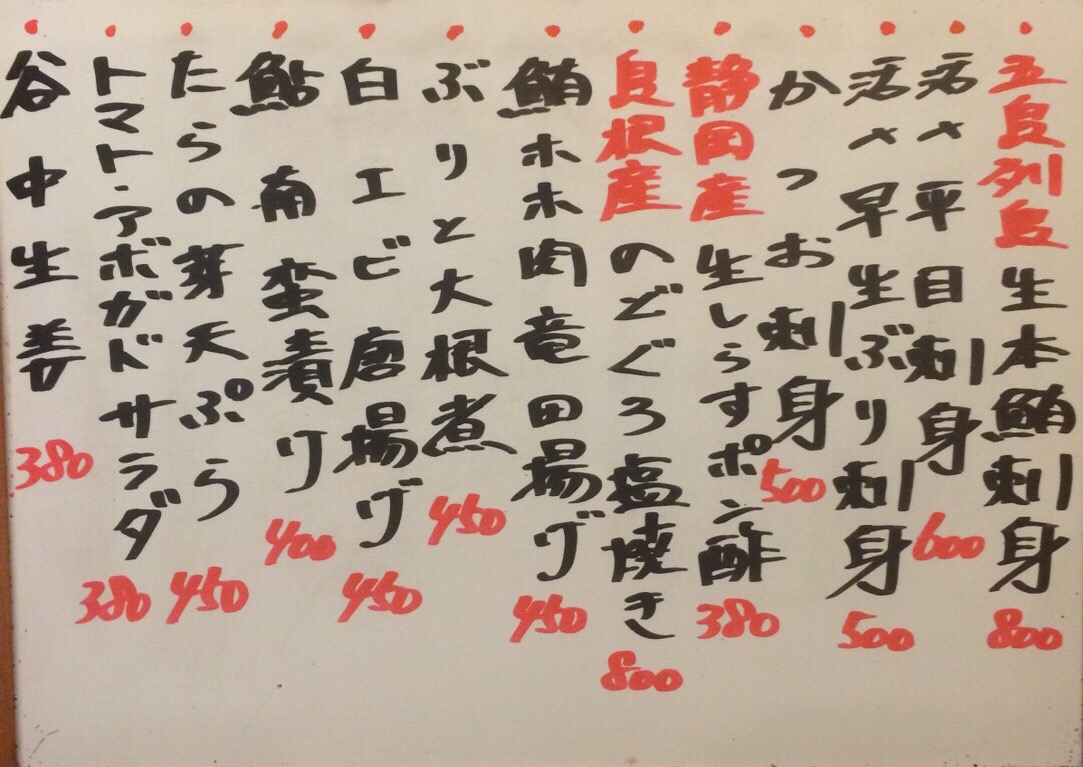 五島列島生本鮪刺身 800
活〆平目刺身 600
活〆早生ぶり刺身 500
かつお刺身 500
静岡産生しらすポン酢 380
島根産のどぐろ塩焼き 800
鮪ホホ肉竜田揚げ 450
ぶりと大根煮 450
白エビ唐揚げ 450
鮎南蛮漬け 400
たらの芽天ぷら 450
トマト・アボガドサラダ 380
谷中生姜 380